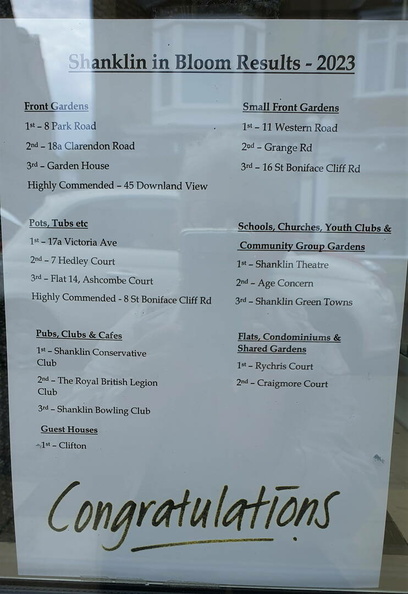 Shanklin in Bloom Results - 2023
Front Gardens
1st – 8 Park Road
2nd – 18a Clarendon Road
3rd – Garden House
Highly Commended – 45 Downland View
Small Front Gardens
1st – 11 Western Road
2nd – Grange Rd
3rd – 16 St Boniface Cliff Rd
Pots, Tubs etc
1st – 17a Victoria Ave
2nd – 7 Hedley Court
3rd – Flat 14, Ashcombe Court
Highly Commended - 8 St Boniface Cliff Rd
Schools, Churches, Youth Clubs &
Community Group Gardens
1st – Shanklin Theatre
2nd – Age Concern
3rd – Shanklin Green Towns
Pubs, Clubs & Cafes
1st – Shanklin Conservative
Club
2nd – The Royal British Legion
Club
3rd – Shanklin Bowling Club
Flats, Condominiums &
Shared Gardens
1st – Rychris Court
2nd – Craigmore Court
Guest Houses
1st – Clifton
Congratulations